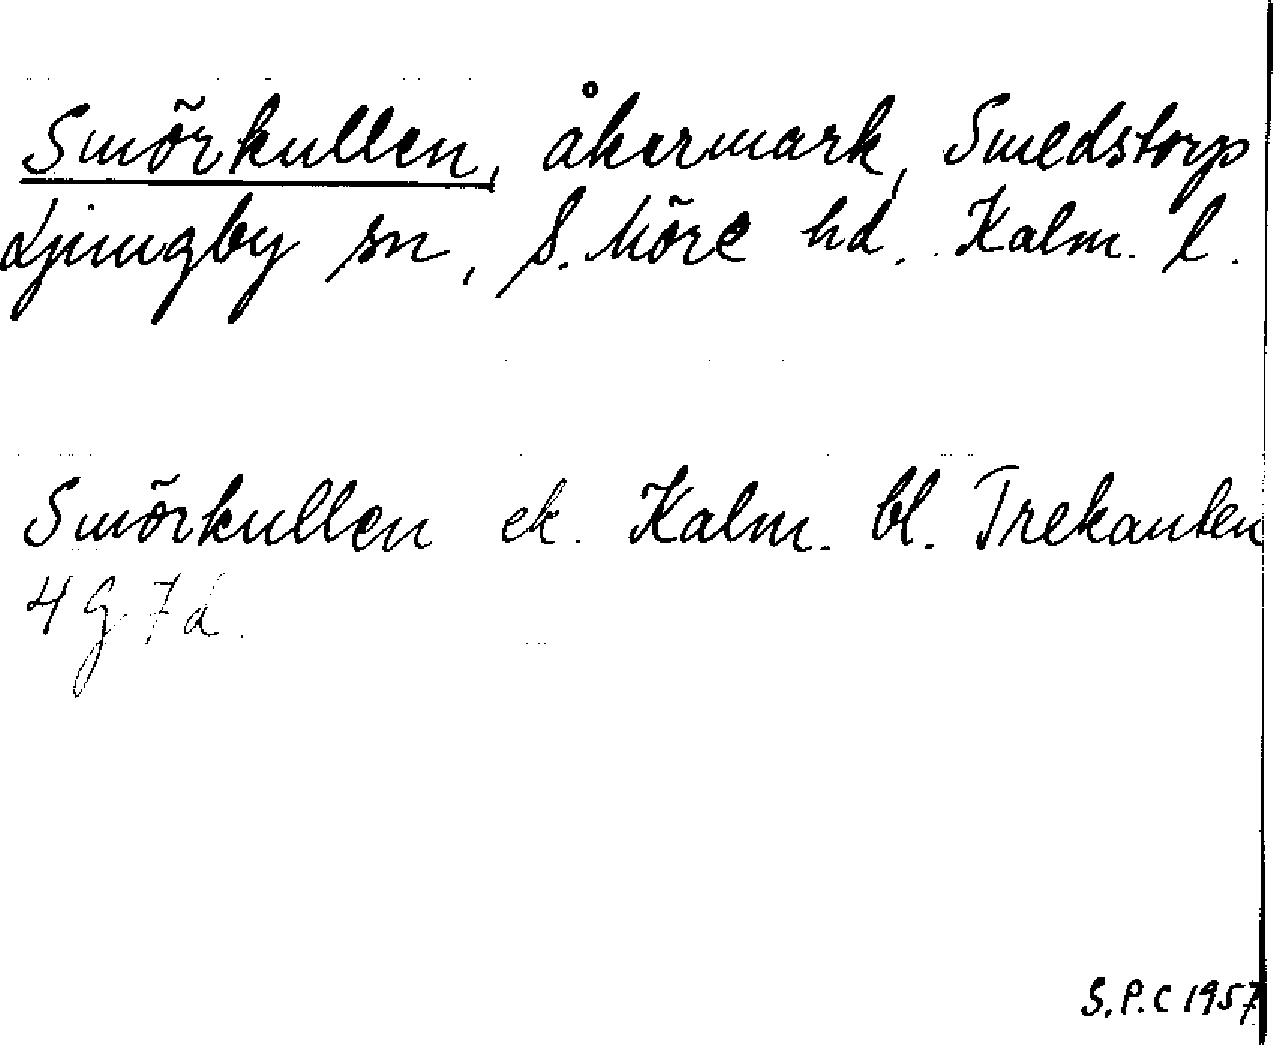 Smörkullen, åkermark, Smedstorp
Ljungby sn, S. Möre hd. Kalm. l.
Smörkullen ek. Kalm. bl. Trekanten
4 G 7d.
S.P.C 1957